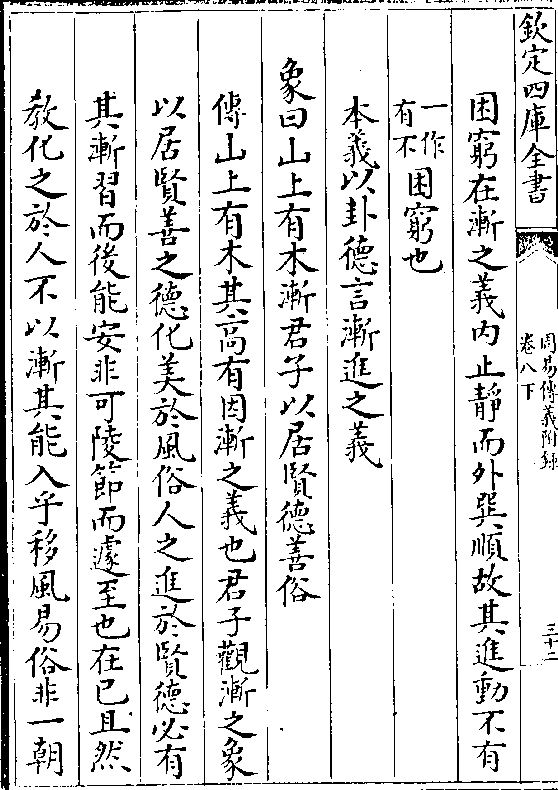 欽定四庫全書
周易傳義附錄
卷八下
三十二
困窮在漸之義内止靜而外巽順故其進動不有
一作
有不
困窮也
本義以卦德言漸進之義
象曰山上有木漸君子以居賢德善俗
傳山上有木其高有因漸之義也君子觀漸之象
以居賢善之德化美於風俗人之進於賢德必有
其漸習而後能安非可陵節而遽至也在已且然
教化之於人不以漸其能入乎移風易俗非一朝